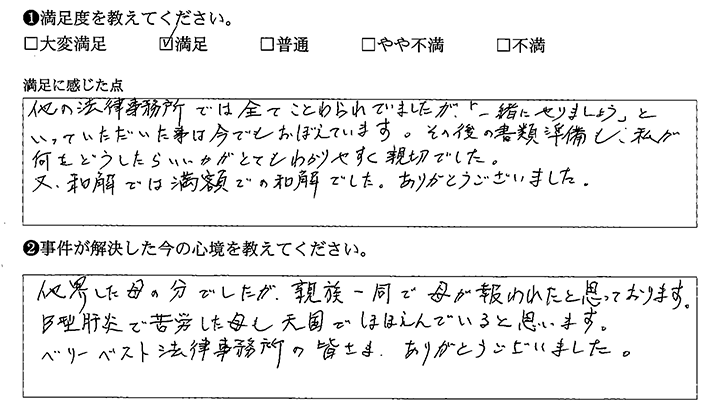 ❶満足度を教えてください。
□大変満足 ☑満足 □普通 □やや不満 □不満
満足に感じた点
他の法律事務所では全てことわられてましたが、「一緒にやりましょう」と
いっていただいた事は今でもおぼえています。その後の書類準備も、私が
何をどうしたらいいかがとてもわかりやすく親切でした。
又、和解では満額での和解でした。ありがとうございました。
❷事件が解決した今の心境を教えてください。
他界した母の分でしたが、親族一同で母が報われたと思っております。
B型肝炎で苦労した母も天国でほほえんでいると思います。
ベリーベスト法律事務所の皆さま、ありがとうございました。